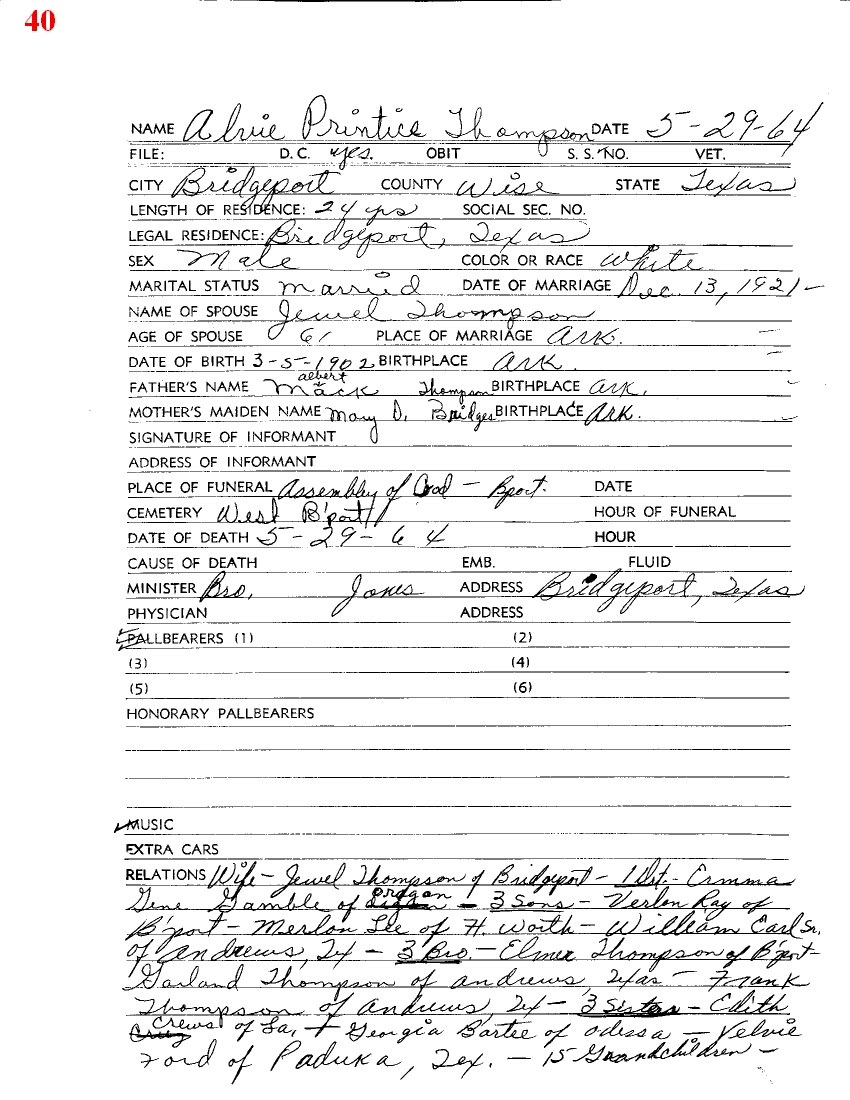 40
NAME Alvie Printice Thompson DATE 5-29-64
FILE: D. C. yes. OBIT S. S. NO. VET.
CITY Bridgeport COUNTY Wise STATE Texas
LENGTH OF RESIDENCE: 24 yrs SOCIAL SEC. NO.
LEGAL RESIDENCE: Bridgeport, Texas
SEX Male COLOR OR RACE White
MARITAL STATUS married DATE OF MARRIAGE Dec. 13, 1921 -
NAME OF SPOUSE Jewel Thompson
AGE OF SPOUSE 61 PLACE OF MARRIAGE Ark.
DATE OF BIRTH 3-5-1902 BIRTHPLACE Ark.
albert
FATHER'S NAME Mack Thompson BIRTHPLACE Ark.
MOTHER'S MAIDEN NAME Mary D. Bridges BIRTHPLACE Ark.
SIGNATURE OF INFORMANT
ADDRESS OF INFORMANT
PLACE OF FUNERAL Assembley of God - Bport. DATE
CEMETERY West B'port HOUR OF FUNERAL
DATE OF DEATH 5-29-64 HOUR
CAUSE OF DEATH EMB. FLUID
MINISTER Bro. Jones ADDRESS Bridgeport, Texas
PHYSICIAN ADDRESS
PALLBEARERS (1) (2)
(3) (4)
(5) (6)
HONORARY PALLBEARERS
MUSIC
EXTRA CARS
RELATIONS Wife - Jewel Thompson of Bridgeport - 1 Dt. - Ermma
Gene Gamble of organ - 3 Sons - Verlon Ray of
B'port - Merlon Lee of Ft. Worth - William Earl Sr.
of Andrews, Tx - 3 Bro. - Elmer Thompson of B'port -
Garland Thompson of Andrews, Texas - Frank
Thompson of Andrews, Tx - 3 Sisters - Edith
Crews of La, + Georgia Bartee of Odissa - Velvie
Ford of Paduka, Tex. - 15 Grandchildren -